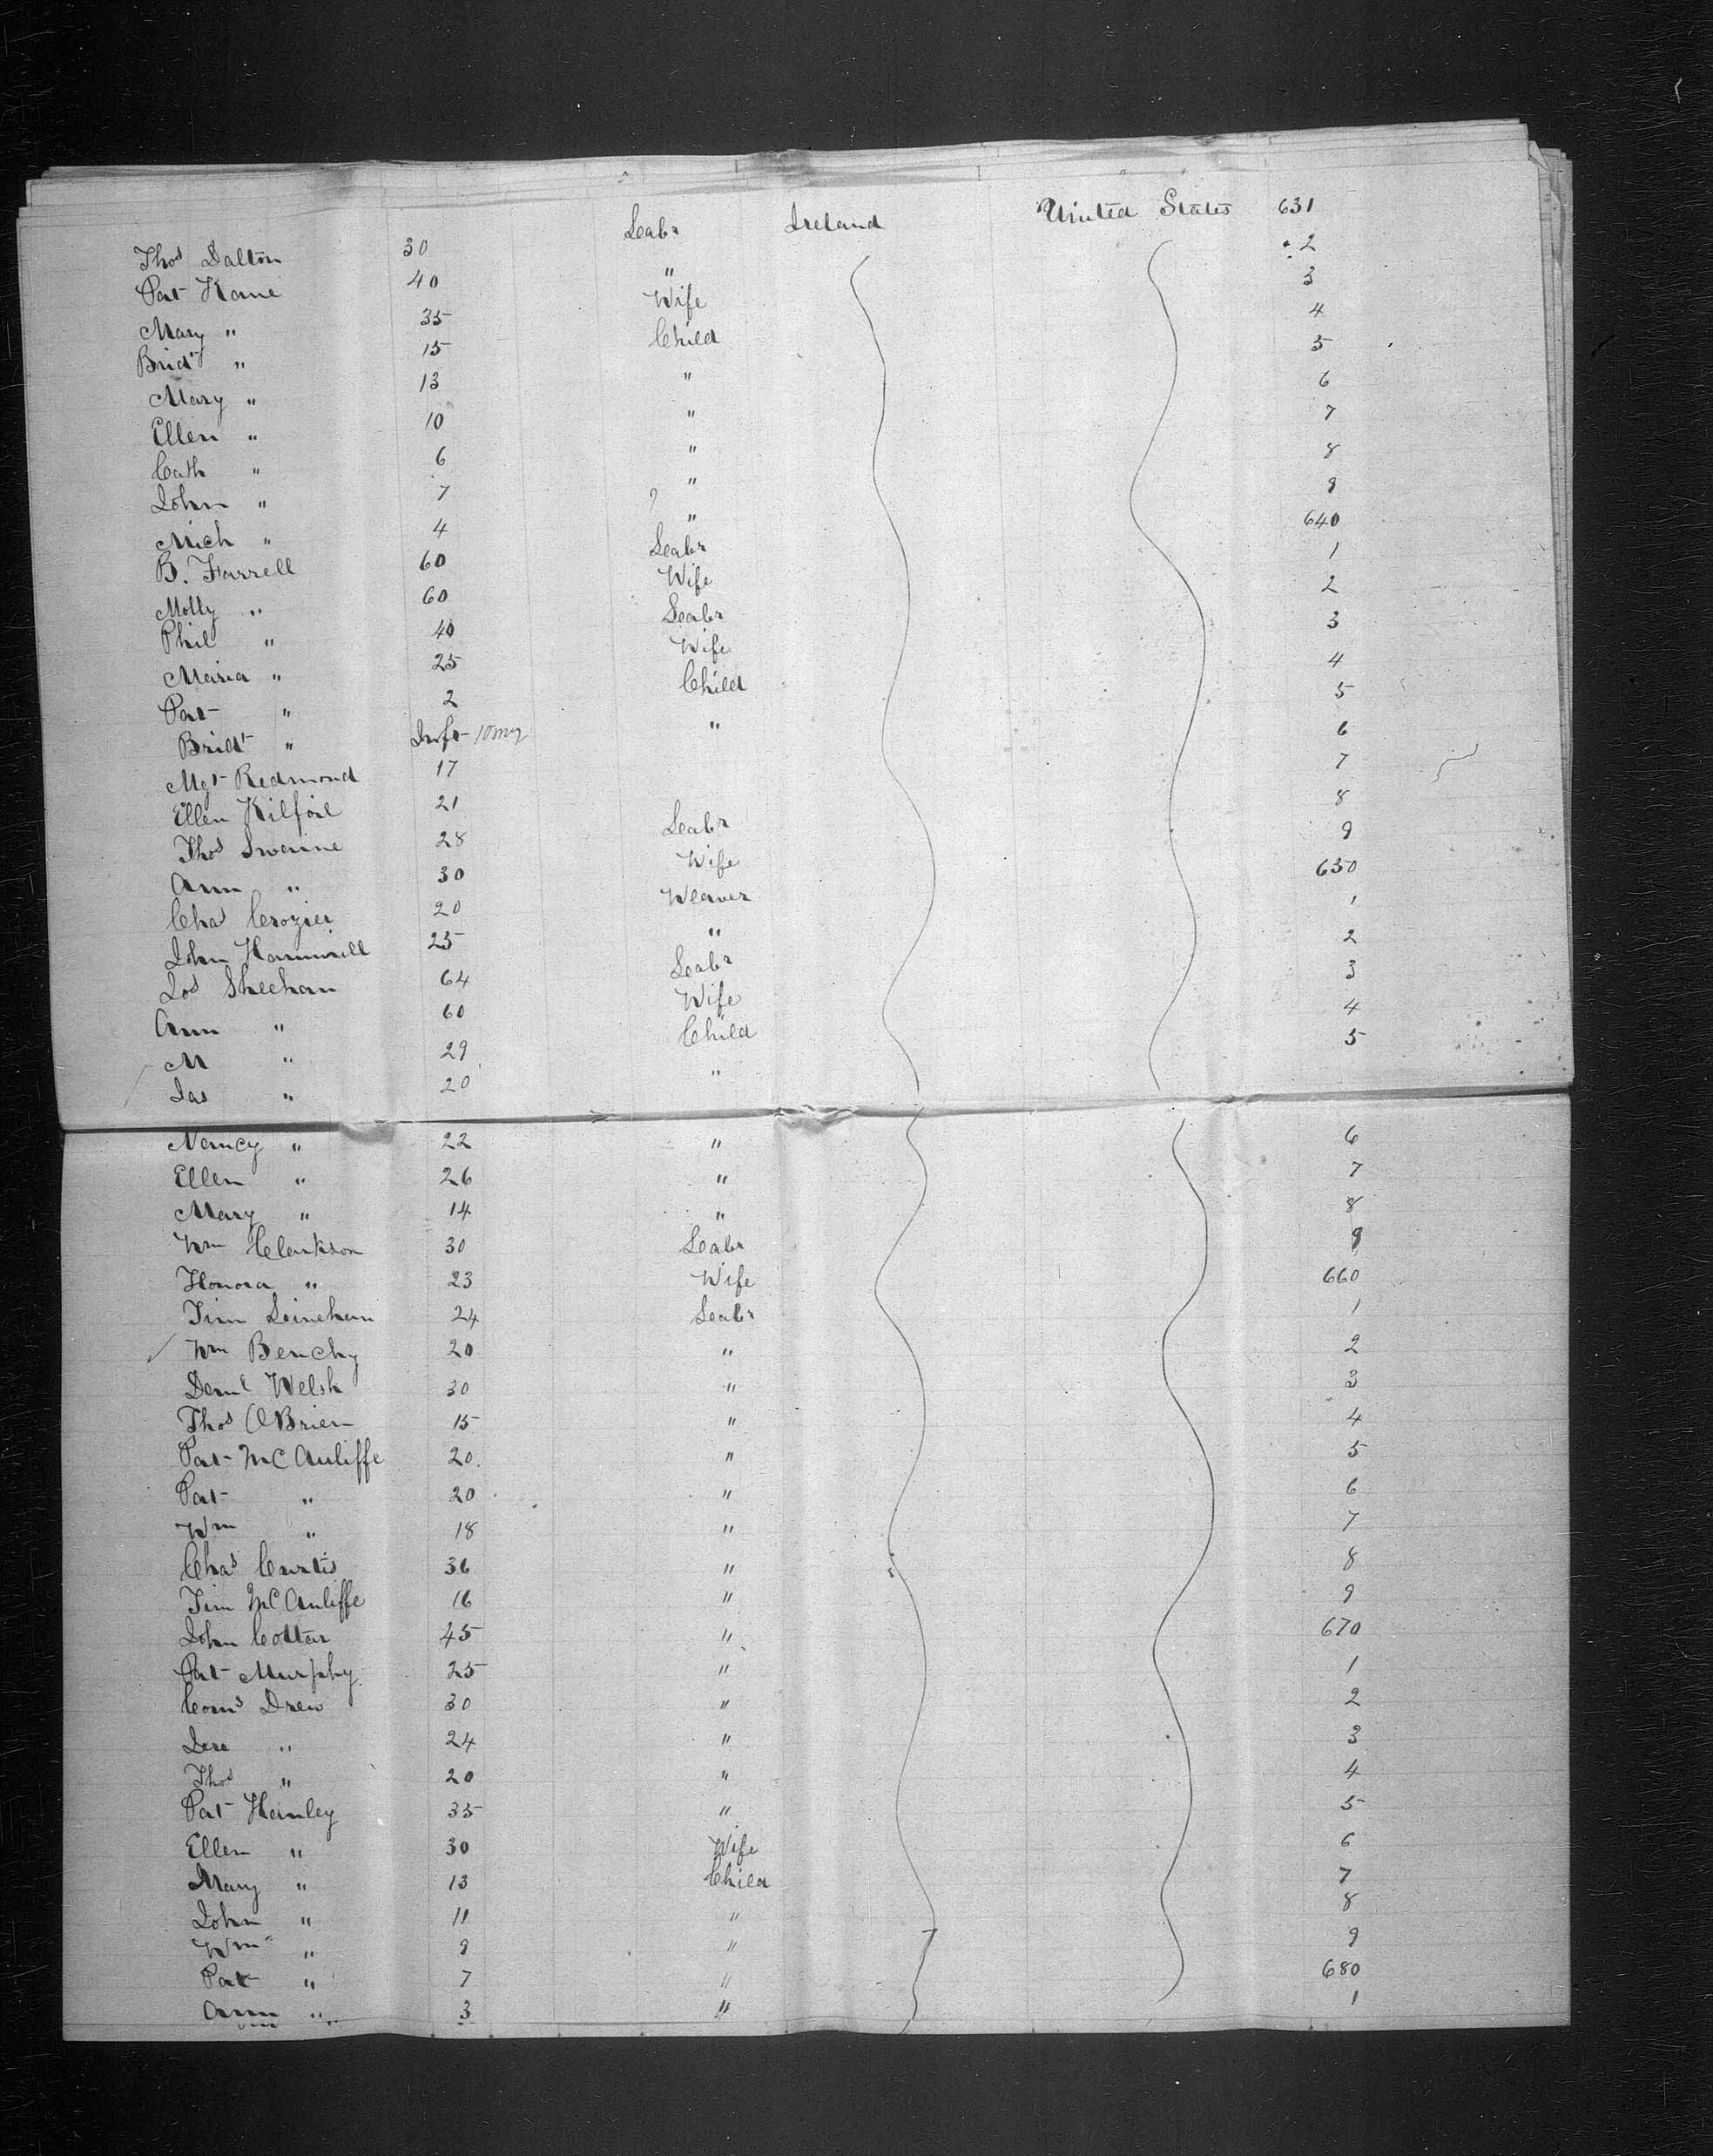 Thos Dalton 30 Labr Ireland United States 631
Pat Kane 40 " 2
Mary " 35 Wife 3
Bridt " 15 Child 4
Mary " 13 " 5
Ellen " 10 " 6
Cath " 6 " 7
John " 7 " 8
Mich " 4 " 9
B. Farrell 60 Labr 640
Molly " 60 Wife 1
Phil " 40 Labr 2
Maria " 25 Wife 3
Pat " 2 Child 4
Bridt " Inft 10 mos " 5
Mgt Redmond 17 6
Ellen Kilfoil 21 7
Thos Swaine 28 Labr 8
Ann " 30 Wife 9
Chas Crozier 20 Weaver 650
John Hammill 25 " 1
Jos Sheehan 64 Labr 2
Ann " 60 Wife 3
M " 29 Child 4
Jas " 20 " 5
Nancy " 22 " 6
Ellen " 26 " 7
Mary " 14 " 8
Wm Clarkson 30 Labr 9
Honora " 23 Wife 660
Tim Leinehan 24 Labr 1
Wm Benchy 20 " 2
Danl Welsh 30 " 3
Thos OBrien 15 " 4
Pat McAuliffe 20 " 5
Pat " 20 " 6
Wm " 18 " 7
Chas Curtis 36 " 8
Tim McAuliffe 16 " 9
John Cotter 45 " 670
Pat Murphy 25 " 1
Corns Drew 30 " 2
Jere " 24 " 3
Thos " 20 " 4
Pat Hanley 35 " 5
Ellen " 30 Wife 6
Mary " 13 Child 7
John " 11 " 8
Wm " 9 " 9
Pat " 7 " 680
Ann " 3 " 1